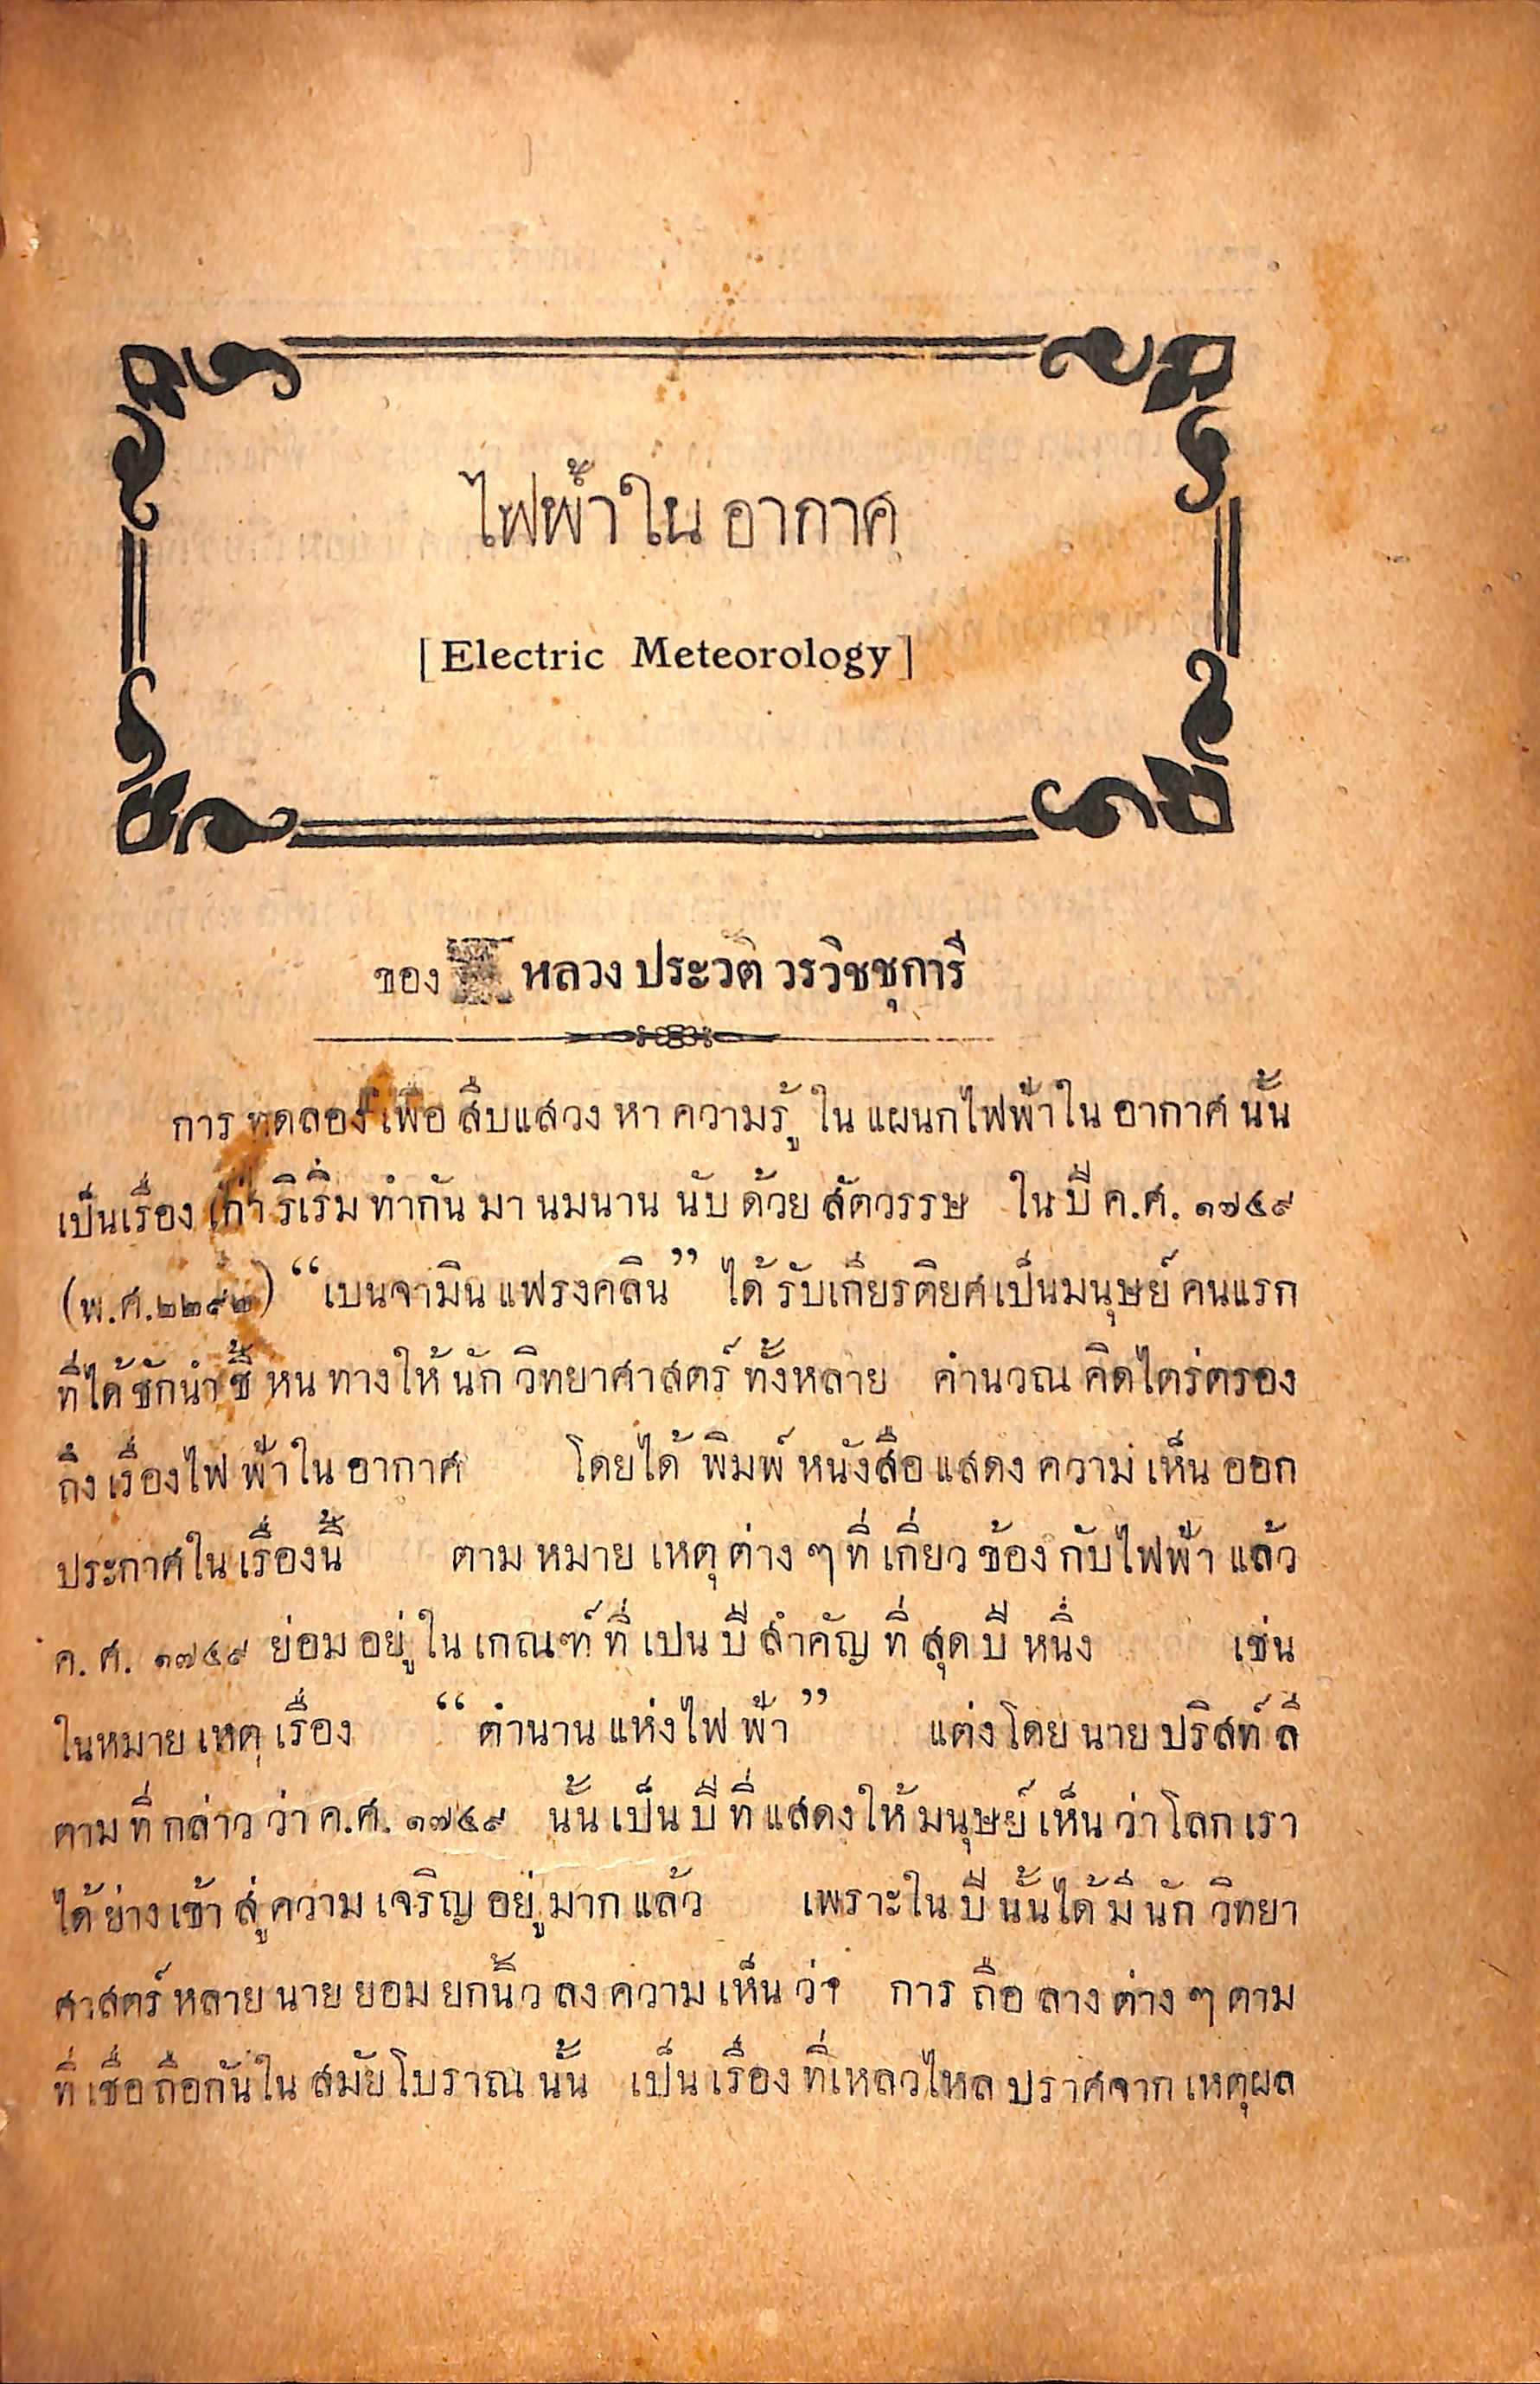 ไฟฟ้าในอากาศ
[Electric Meteorology]
ของ หลวงประวัติวรวิชชุการี
การทดลองเพื่อสืบแสวงหาความรู้ในแผนกไฟฟ้าในอากาศนั้น
เป็นเรื่องเก่าริเริ่มทำกันมานมนานนับด้วยสัตวรรษ ในปี ค.ศ. ๑๗๔๙
(พ.ศ.๒๒๙๒) “เบนจามินแฟรงคลิน” ได้รับเกียรติยศเป็นมนุษย์คนแรก
ที่ได้ชักนำชี้หนทางให้นักวิทยาศาสตร์ทั้งหลาย คำนวณคิดไตร่ตรอง
ถึงเรื่องไฟฟ้าในอากาศ โดยได้พิมพ์หนังสือแสดงความเห็นออก
ประกาศในเรื่องนี้ ตามหมายเหตุต่างๆที่เกี่ยวข้องกับไฟฟ้าแล้ว
ค.ศ. ๑๗๔๙ ย่อมอยู่ในเกณฑ์ที่เปนปีสำคัญที่สุดปีหนึ่ง เช่น
ในหมายเหตุเรื่อง “ตำนานแห่งไฟฟ้า” แต่งโดยนายปริสท์ลี
ตามที่กล่าวว่าค.ศ. ๑๗๔๙ นั้นเป็นปีที่แสดงให้มนุษย์เห็นว่าโลกเรา
ได้ย่างเข้าสู่ความเจริญอยู่มากแล้ว เพราะในปีนั้นได้มีนักวิทยา
ศาสตร์หลายนายยอมยกนิ้วลงความเห็นว่า การถือลางต่างๆตาม
ที่เชื่อถือกันในสมัยโบราณนั้น เป็นเรื่องที่เหลวไหลปราศจากเหตุผล